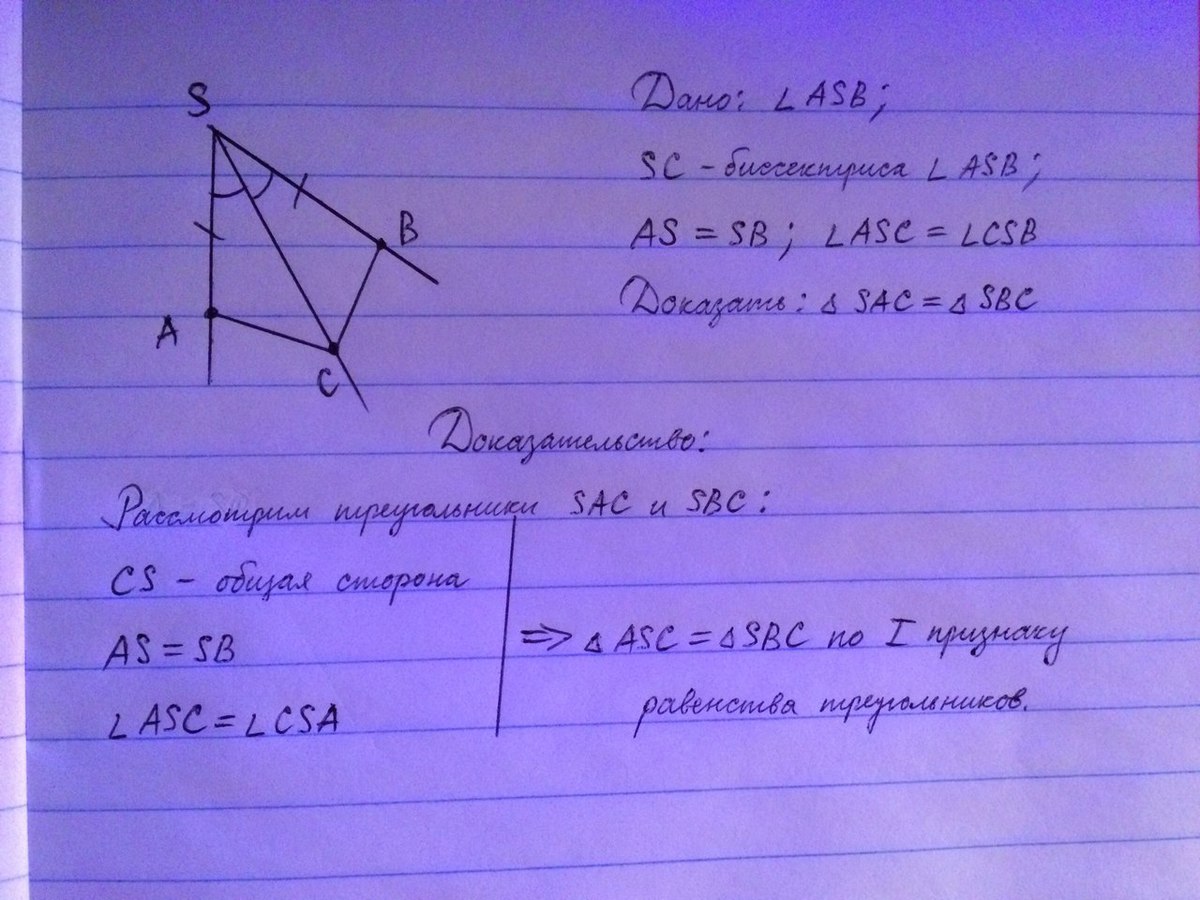 S
B
A
C
Дано: ∠ASB;
SC - биссектриса ∠ASB;
AS = SB; ∠ASC = ∠CSB
Доказать: △ SAC = △ SBC
Доказательство:
Рассмотрим треугольники SAC и SBC:
CS - общая сторона
AS = SB
∠ASC = ∠CSA
=> △ ASC = △SBC по I признаку
равенства треугольников.